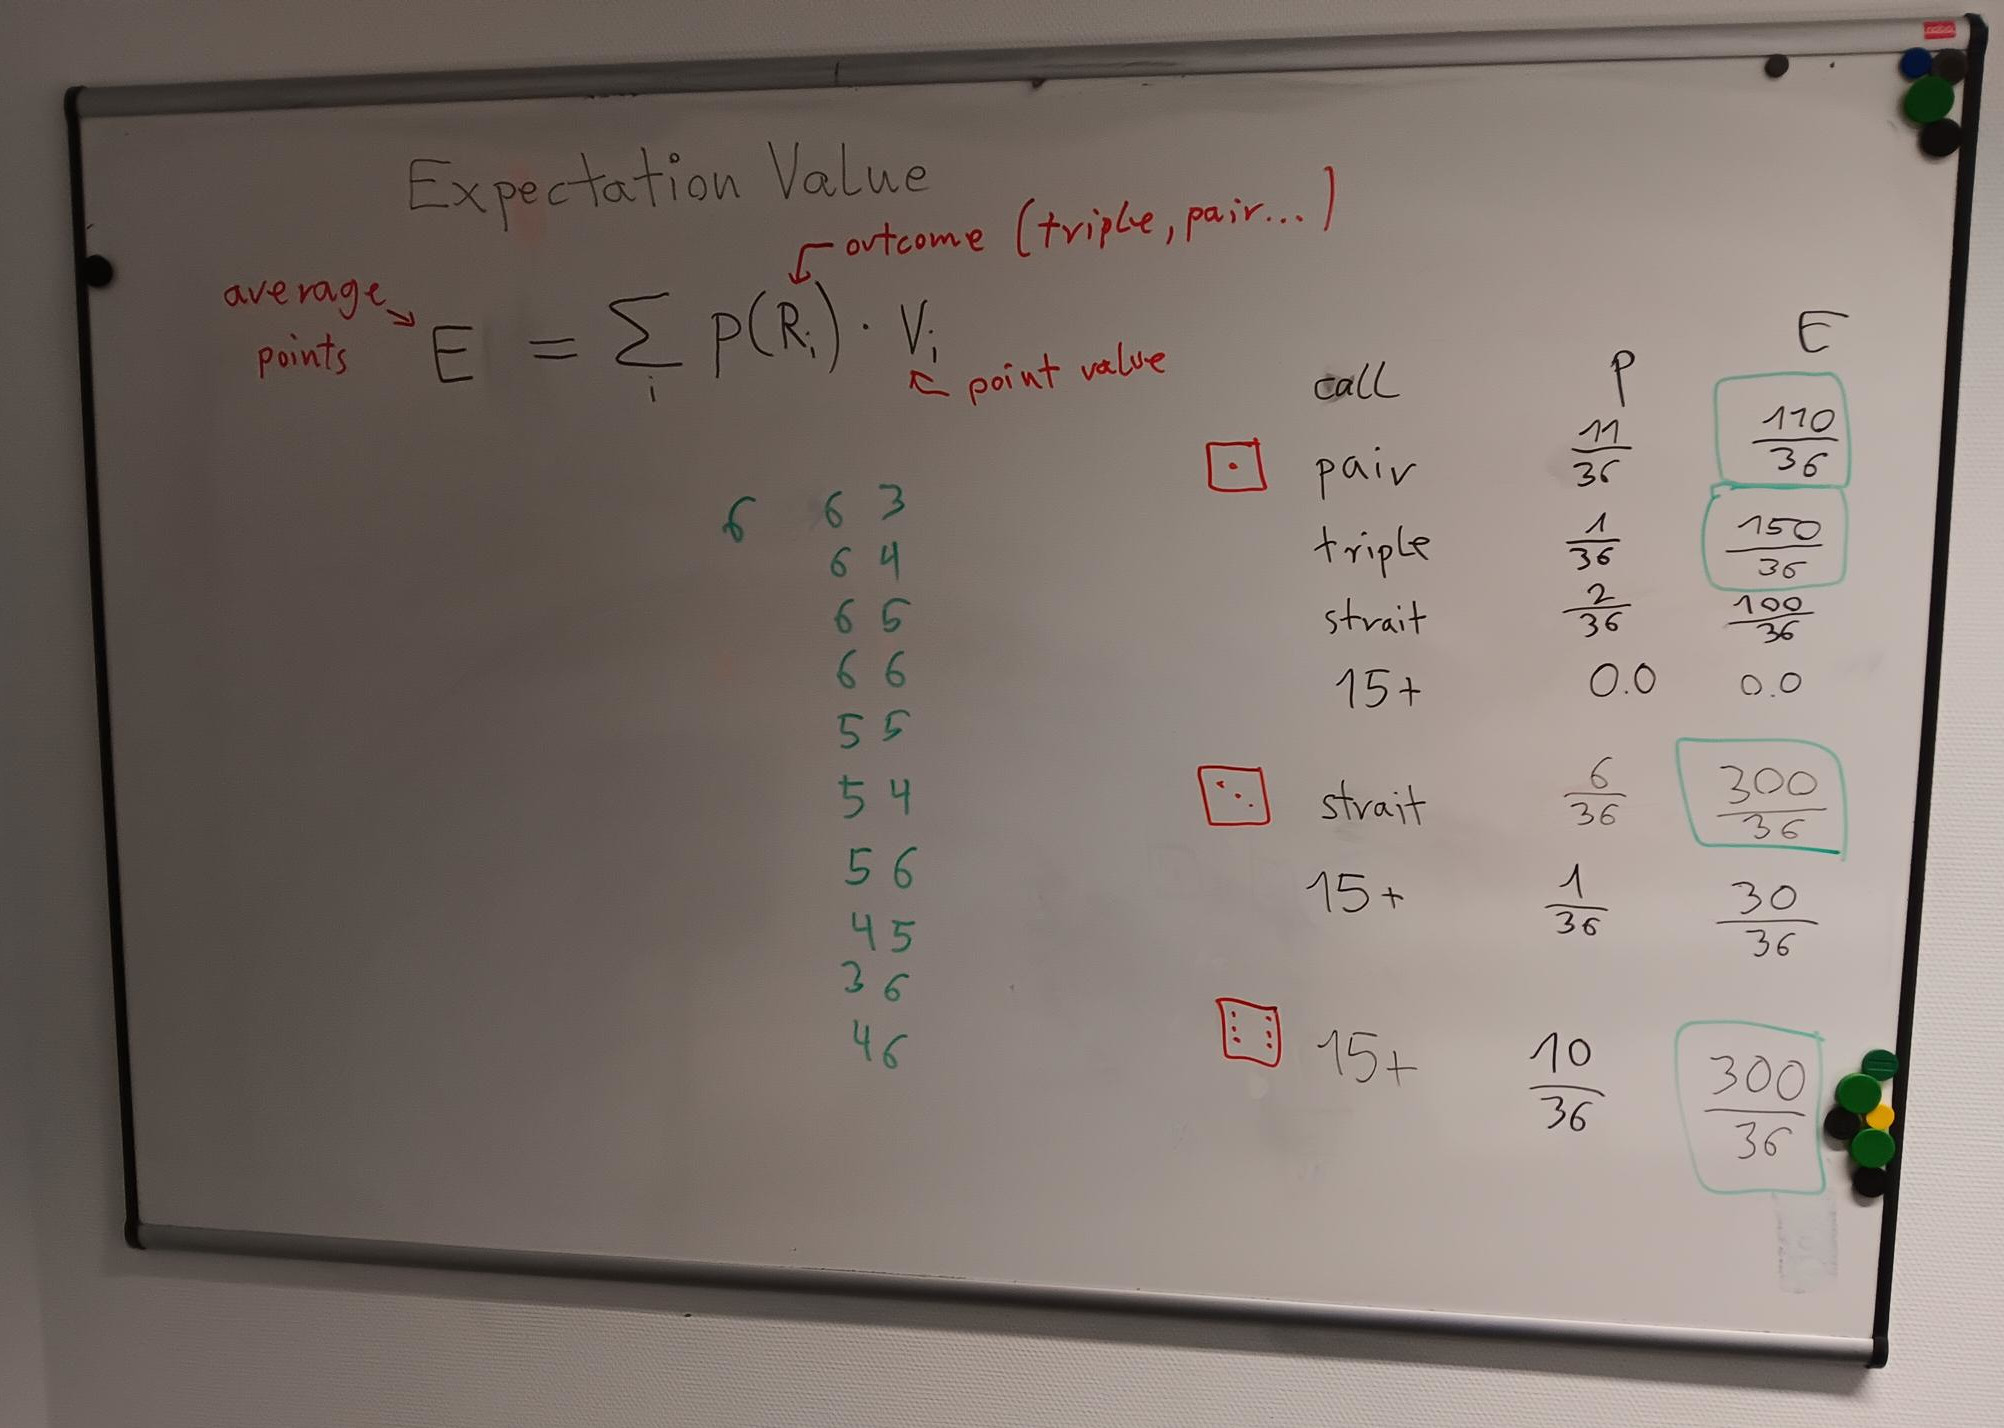 Expectation Value
outcome (triple, pair...)
average
points
E = ∑ p(Rᵢ) · Vᵢ
i
point value
6 6 3
6 4
6 5
6 6
5 5
5 4
5 6
4 5
3 6
4 6
call P E
pair 11/36 110/36
triple 1/36 150/36
strait 2/36 100/36
15+ 0.0 0.0
strait 6/36 300/36
15+ 1/36 30/36
15+ 10/36 300/36